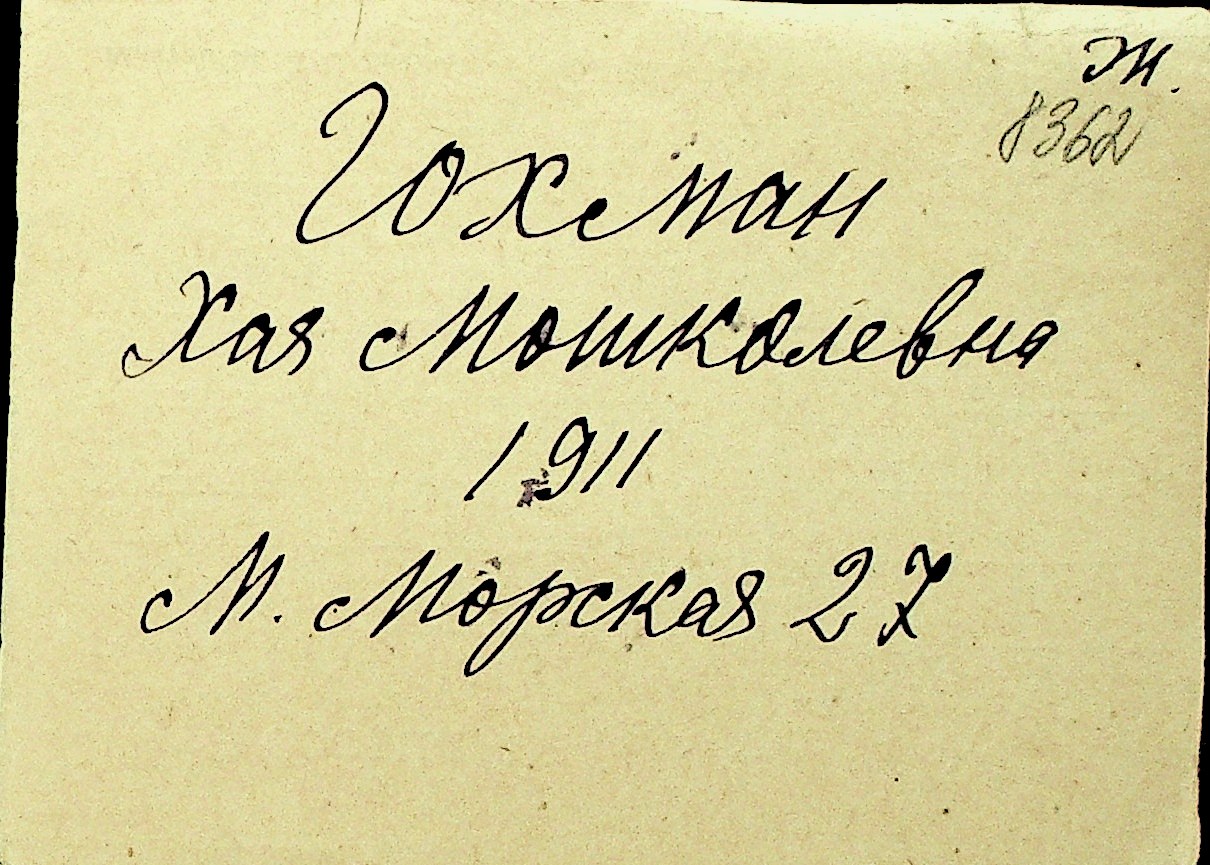 Ж.
8362
Гохман
Хая Мошколевна
1911
М. Морская 27